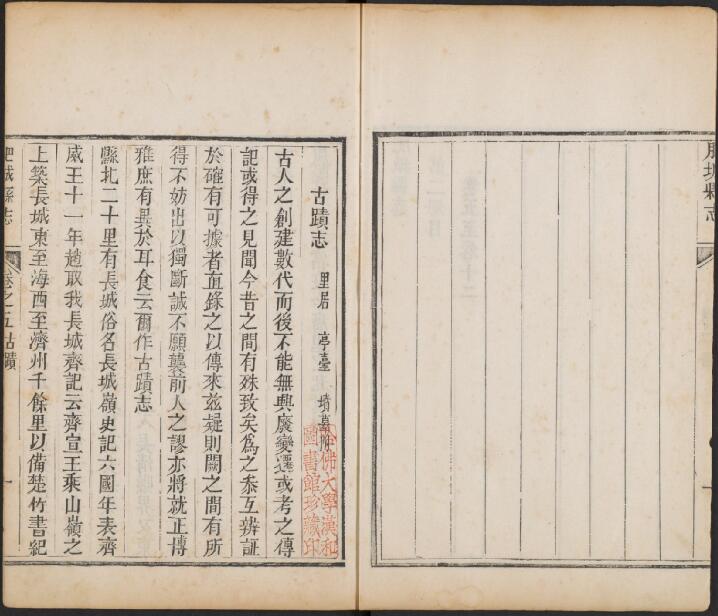 肥城縣志
古蹟志 里居 亭臺 墳墓附
古人之創建數代而後不能無興廢變遷或考之傳
記或得之見聞今昔之間有殊致矣爲之叅互辨証
於確有可據者直錄之以傳來兹疑則闕之間有所
得不妨出以獨斷誠不願襲前人之謬亦將就正博
雅庶有異於耳食云爾作古蹟志
縣北二十里有長城俗名長城嶺史記六國年表齊
威王十一年趙取我長城齊記云齊宣王乘山嶺之
上築長城東至海西至濟州千餘里以備楚竹書紀
肥城縣志 卷之五古蹟 一
哈佛大學漢和
圖書館珍藏印